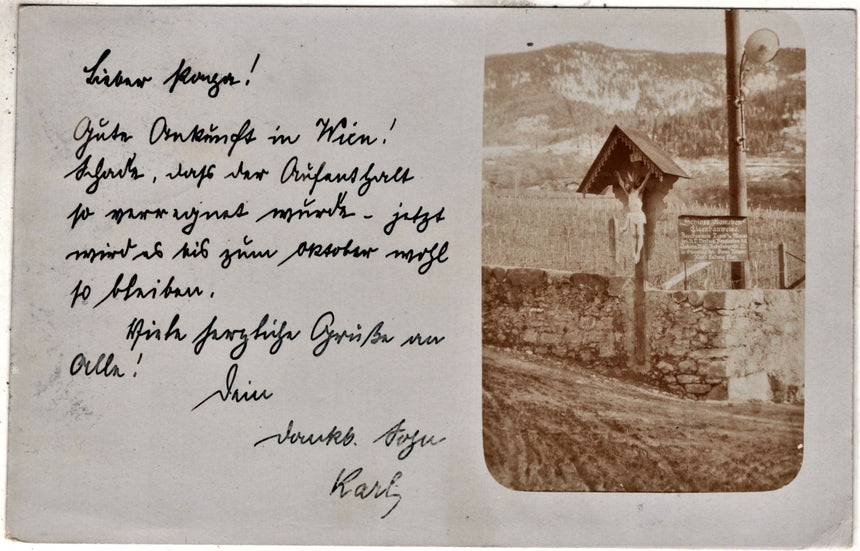 Lieber Papa!
Gute Ankunft in Wien!
Schade, dass der Aufenthalt
so verregnet wurde - jetzt
wird es bis zum Oktober wohl
so bleiben.
Viele herzliche Grüße an
Alle!
Dein
dankb. Sohn
Karl
Schloss
Eigenbauweine